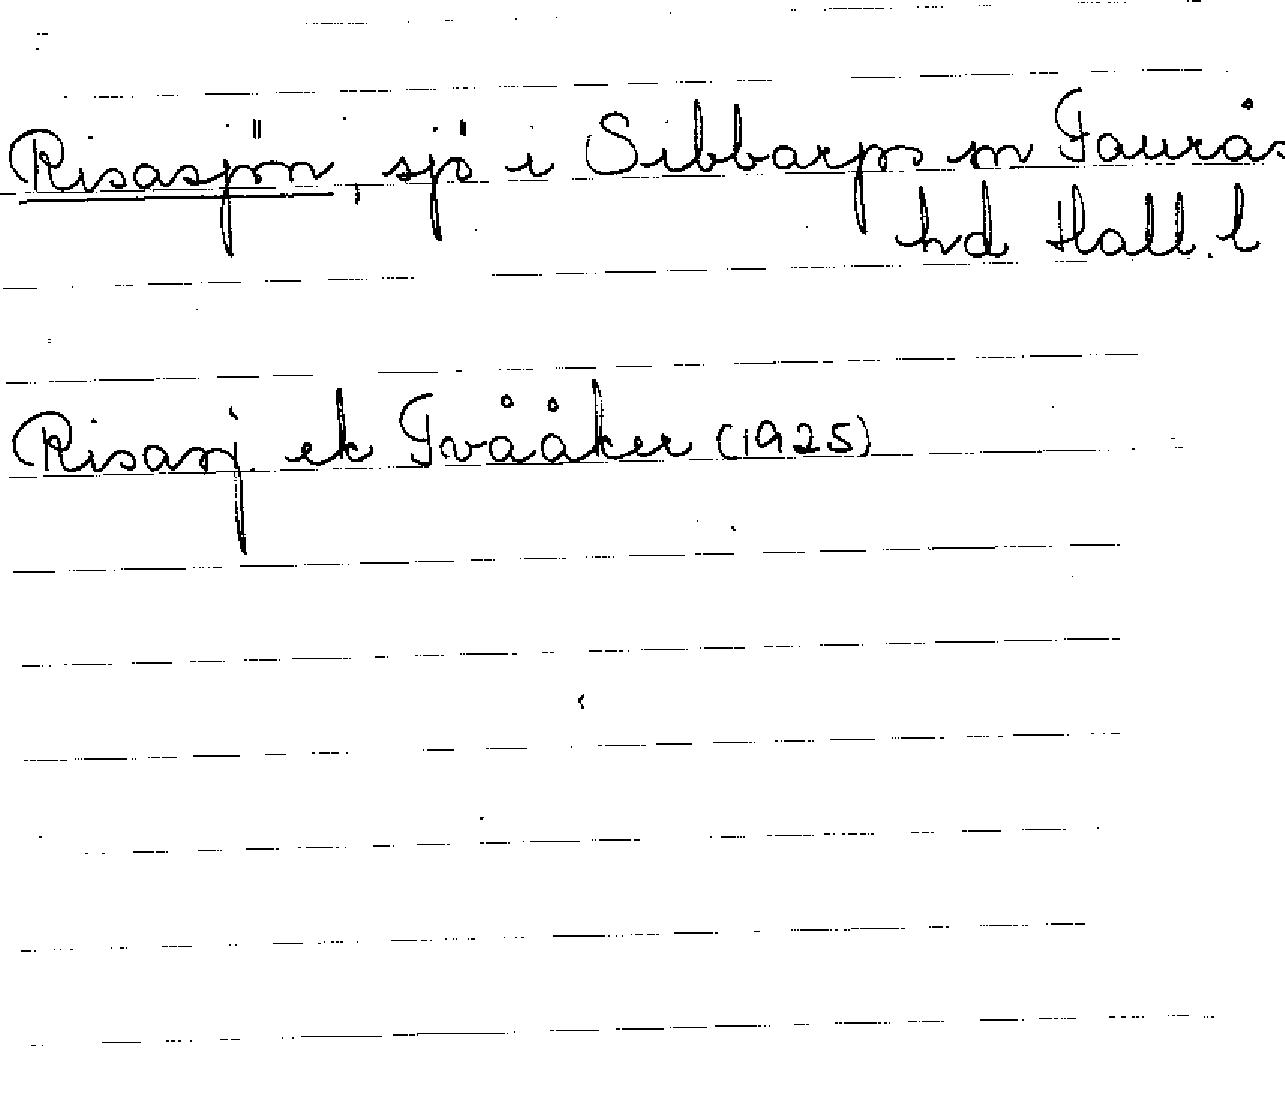 Risasjön, sjö i Sibbarps sn Faurås
hd Hall. l
Risasj. ek Tvååker (1925)